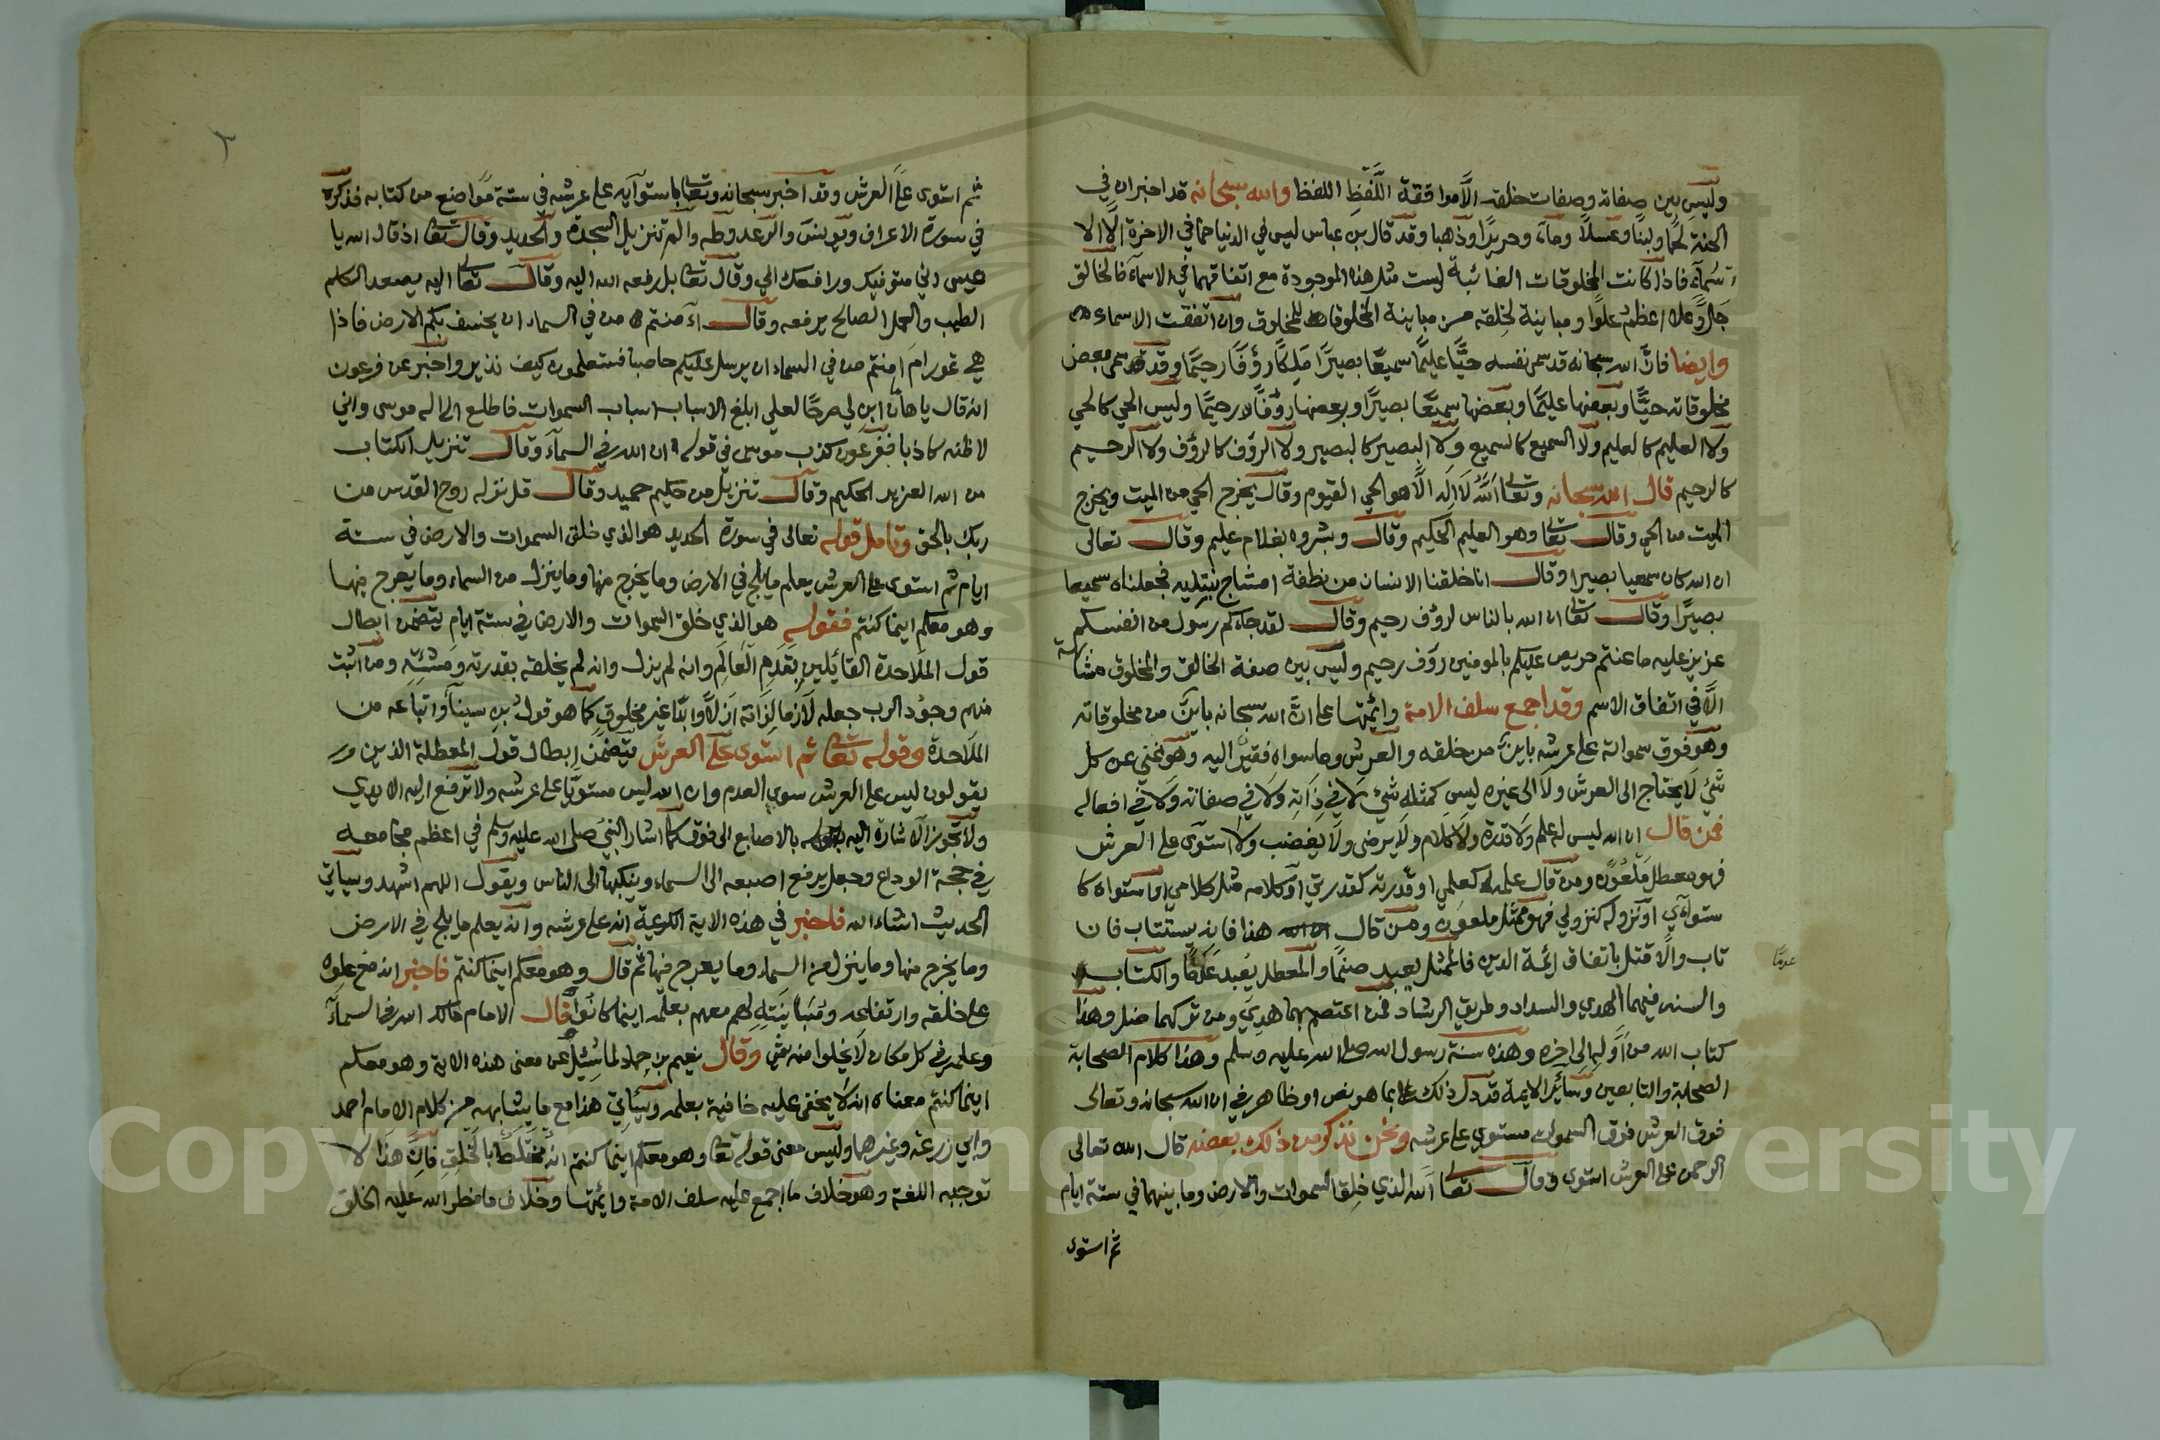 وليس بين صفاته وصفات خلقه الا موافقة اللفظ اللفظ والله سبحانه قد اخبر ان في
الجنة لحما ولبنا وعسلا وماء وحريرا وذهبا وقد قال بن عباس ليس في الدنيا مما في الاخرة الا الا
سماء فاذا كانت المخلوقات الغائبة ليست مثل هذه الموجودة مع اتفاقهما في الاسماء فالخالق
جل وعلا اعظم علوا ومباينة لخلقه من مباينة المخلوقات للمخلوق وان اتفقت الاسماء
وايضا فان الله سبحانه قد سمى نفسه حيا عليما سميعا بصيرا ملكا رؤفا رحيما وقد سمى بعض
مخلوقاته حيا وبعضها عليما وبعضها سميعا بصيرا وبعضها رؤفا رحيما وليس الحي كالحي
ولا العليم كالعليم ولا السميع كالسميع ولا البصير كالبصير ولا الروف كالروف ولا الرحيم
كالرحيم قال الله سبحانه وتعالى الله لا اله الا هو الحي القيوم وقال يخرج الحي من الميت ويخرج
الميت من الحي وقال تعا وهو العليم الحكيم وقال وبشروه بغلام عليم وقال تعالى
ان الله كان سميعا بصيرا وقال انا خلقنا الانسان من نطفة امشاج نبتليه فجعلناه سميعا
بصيرا وقال تعا ان الله بالناس لروف رحيم وقال لقد جاءكم رسول من انفسكم
عزيز عليه ما عنتم حريص عليكم بالمومنين روف رحيم وليس بين صفة الخالق والمخلوق مشابهة
الا في اتفاق الاسم وقد اجمع سلف الامة وائمتها على ان الله سبحانه باين من مخلوقاته
وهو فوق سمواته على عرشه باين من خلقه والعرش وما سواه فقير اليه وهو غني عن كل
شئ لا يحتاج الى العرش ولا الى غيره ليس كمثله شئ لا في ذاته ولا في صفاته ولا في افعاله
فمن قال ان الله ليس له علم ولا قدرة ولا كلام ولا يرضى ولا يغضب ولا استوى على العرش
فهو معطل ملعون ومن قال علمه كعلمي او قدرته كقدرتي او كلامه مثل كلامي او استواه كا
ستوائي او نزوله كنزولي فهو ممثل ملعون ومن قال هذا فانه يستتاب فان
تاب والا قتل باتفاق ائمة الدين فالممثل يعبد صنما والمعطل يعبد عدما والكتاب
عدما
والسنة فيهما الهدي والسداد وطريق الرشاد فمن اعتصم بهما هدي ومن تركهما ضل وهذا
كتاب الله من اوله الى اخره وهذه سنة رسول الله صلى الله عليه وسلم وهذا كلام الصحابة
الصحابة والتابعين وسائر الايمة قد دل ذلك بما هو نص او ظاهر في ان الله سبحانه وتعالى
فوق العرش فوق السموات مستوي على عرشه ونحن نذكر من ذلك بعضه قال الله تعالى
الرحمن على العرش استوى وقال تعا الله الذي خلق السموات والارض وما بينهما في ستة ايام
ثم استوى
٣
ثم استوى على العرش وقد اخبر سبحانه وتعا باستوآيه على عرشه في ستة مواضع من كتابه فذكره
في سورة الاعراف ويونس والرعد وطه والم تنزيل السجدة والحديد وقال تعا اذ قال الله يا
عيسى اني متوفيك ورافعك الي وقال تعا بل رفعه الله اليه وقال تعا اليه يصعد الكلم
الطيب والعمل الصالح يرفعه وقال أأمنتم من في السماء ان يخسف بكم الارض فاذا
هي تمور ام امنتم من في السماء ان يرسل عليكم حاصبا فستعلمون كيف نذير واخبر عن فرعون
انه قال ياهامان ابن لي صرحا لعلي ابلغ الاسباب اسباب السموات فاطلع الى اله موسى واني
لاظنه كاذبا ففرعون كذب موسى في قوله ان الله في السماء وقال تنزيل الكتاب
من الله العزيز الحكيم وقال تنزيل من حكيم حميد وقال قل نزله روح القدس من
ربك بالحق وتامل قوله تعالى في سورة الحديد هو الذي خلق السموات والارض في ستة
ايام ثم استوى على العرش يعلم ما يلج في الارض وما يخرج منها وما ينزل من السماء وما يعرج فيها
وهو معكم اينما كنتم فقوله هو الذي خلق السموات والارض في ستة ايام يتضمن ابطال
قول الملاحدة القائلين بقدم العالم وانه لم يزل وانه لم يخلقه بقدرته ومشئته ومن اثبت
منهم وجود الرب جعله لازما لذاته ازلا وابدا غير مخلوق كما هو قول بن سينا واتباعه من
الملاحدة وقوله تعا ثم استوى على العرش يتضمن ابطال قول المعطلة الذين
يقولون ليس على العرش سوى العدم وان الله ليس مستويا على عرشه ولا ترفع اليه الايدي
ولا تجوز الاشارة اليه بالاصابع الى فوق كما اشار النبي صلى الله عليه وسلم في اعظم مجامعه
في حجة الوداع وجعل يرفع اصبعه الى السماء وينكبها الى الناس ويقول اللهم اشهد وسياتي
الحديث انشاء الله فاخبر في هذه الاية الكريمة انه على عرشه وانه يعلم ما يلج في الارض
وما يخرج منها وما ينزل من السماء وما يعرج فيها ثم قال وهو معكم اينما كنتم فاخبر انه مع علوه
على خلقه وارتفاعه ومباينته لهم معهم بعلمه اينما كانوا قال الامام مالك الله في السماء
وعلمه في كل مكان لا يخلوا منه شئ وقال نعيم بن حماد لما سئل عن معنى هذه الاية وهو معكم
اينما كنتم معناه انه لا يخفى عليه خافية بعلمه وسيأتي هذا مع ما يشابهه من كلام الامام احمد
وابي زرعة وغيرهما وليس معنى قوله تعا وهو معكم اينما كنتم انه مختلط بالخلق فان هذا لا
توجبه اللغة وهو خلاف ما اجمع عليه سلف الامة وائمتها وخلاف ما فطر الله عليه الخلق
Copyright © King Saud University